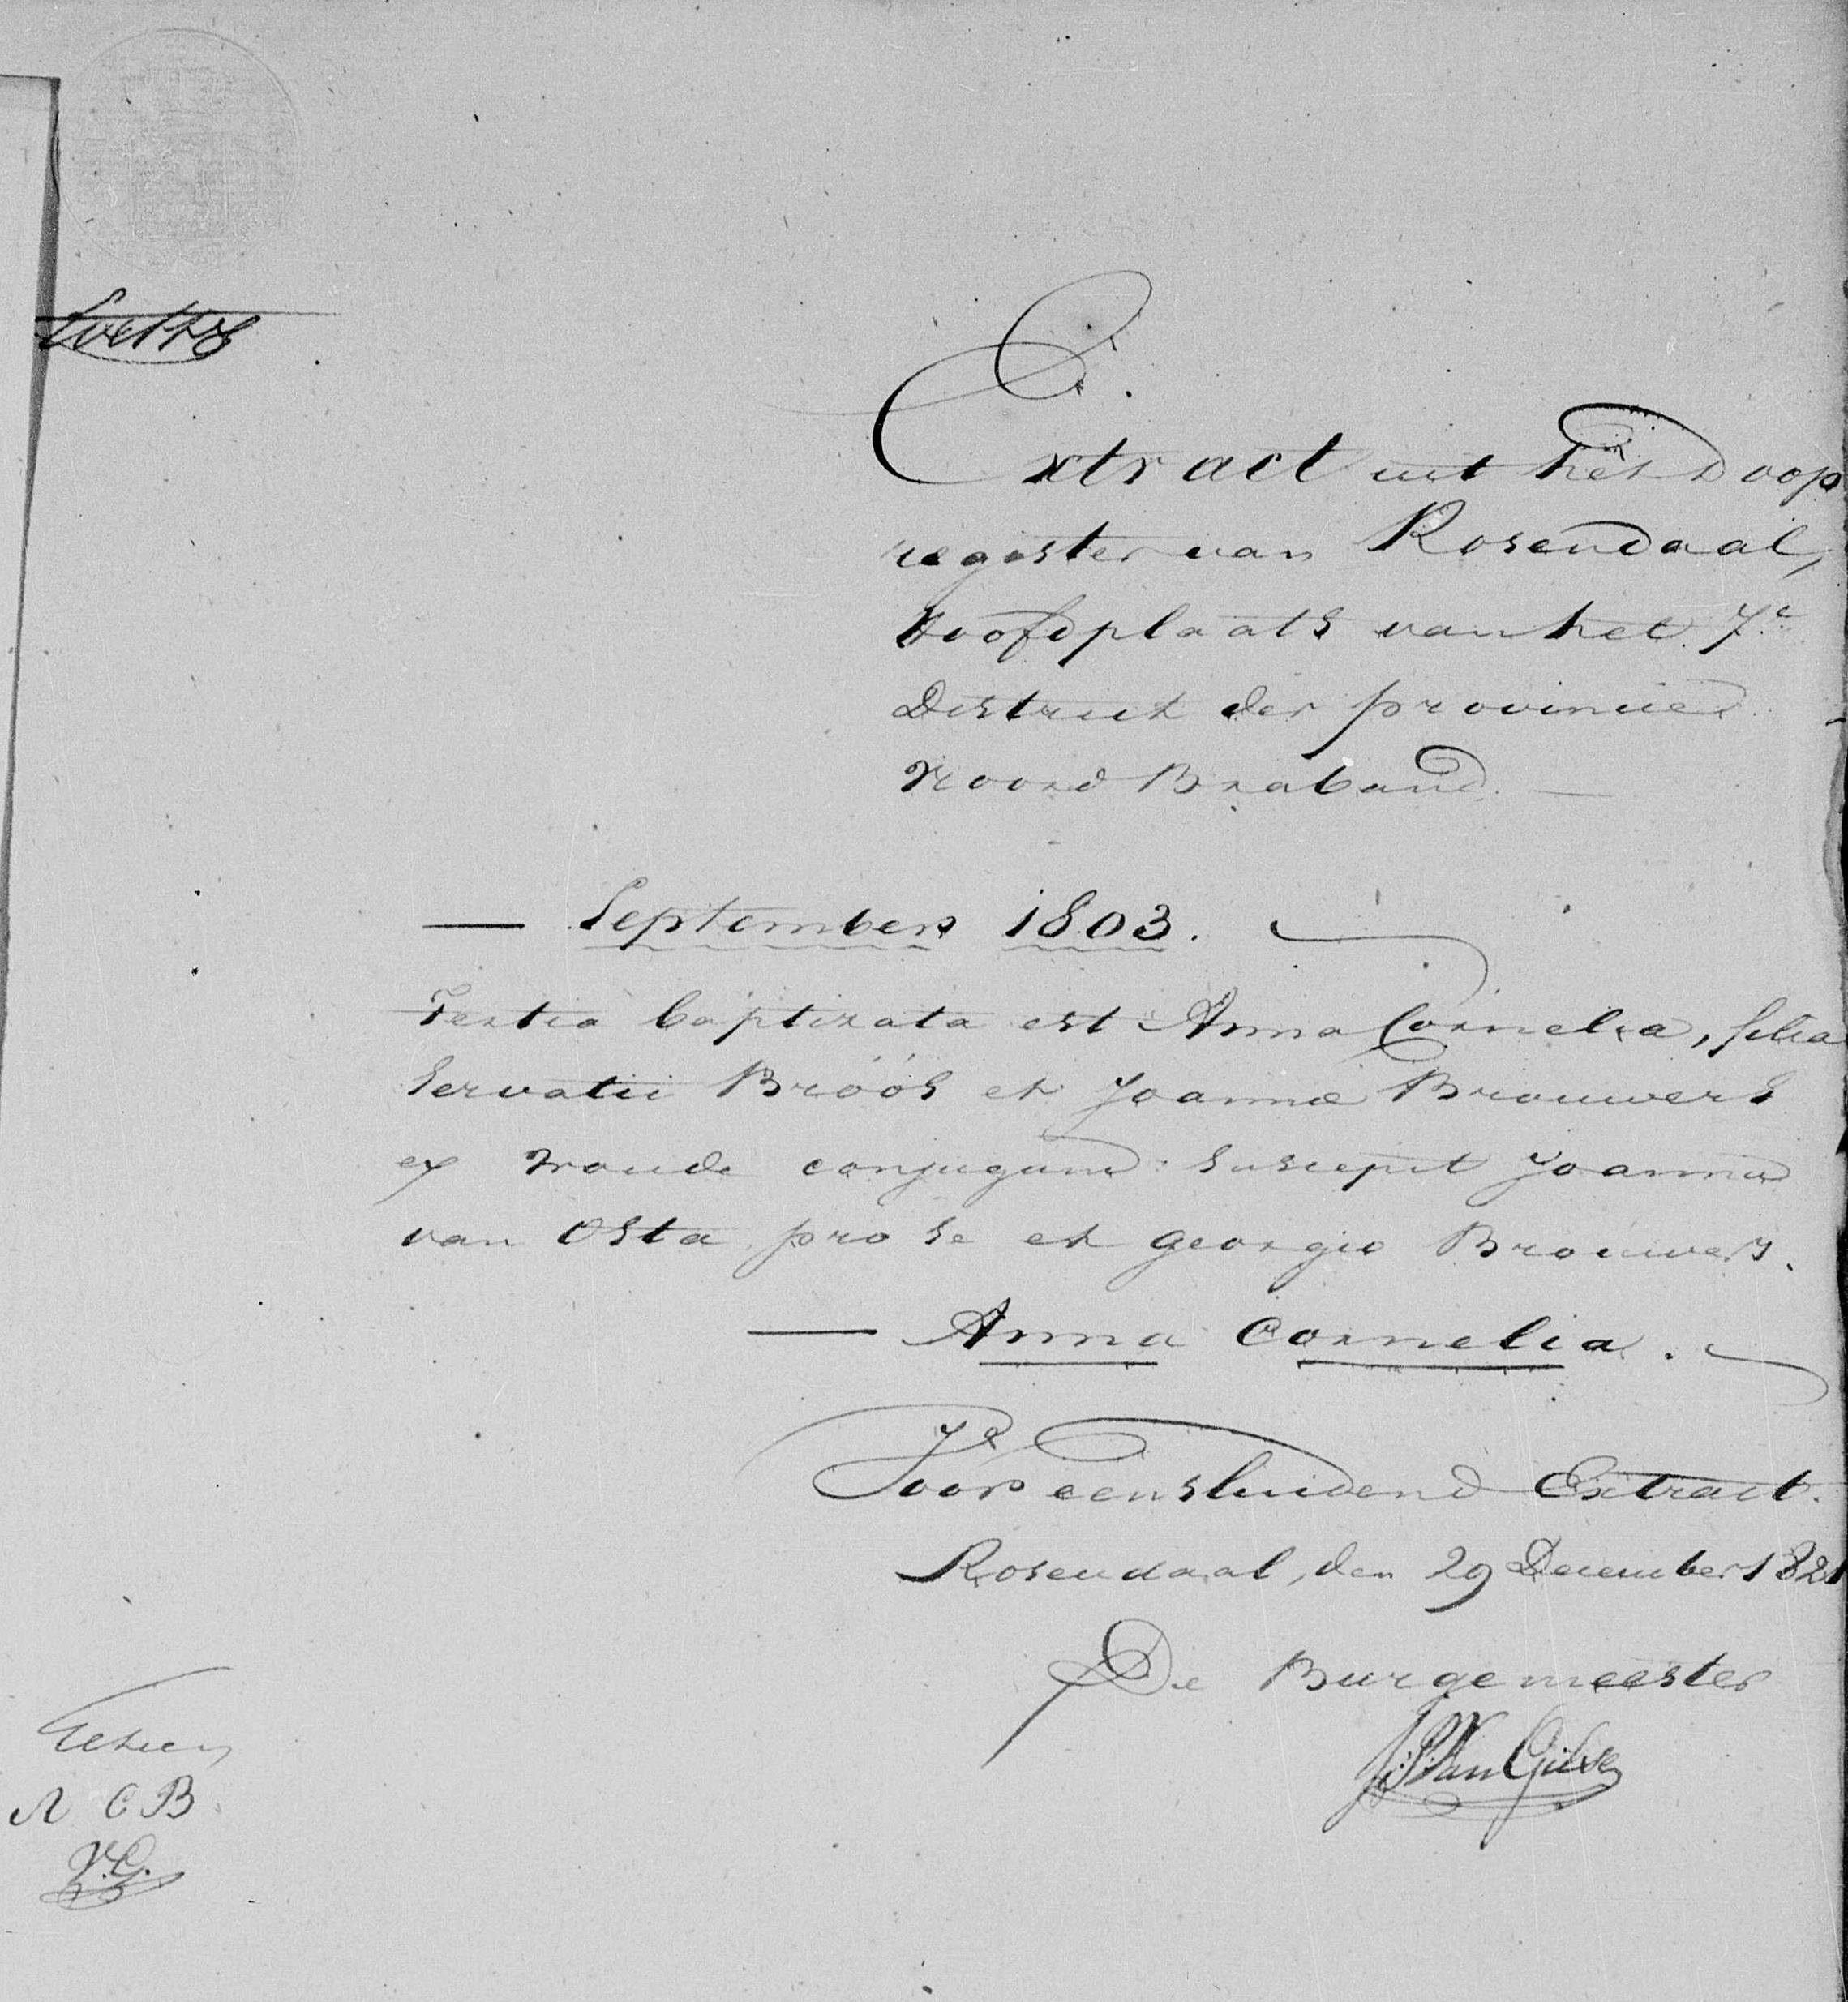 Extract uit het Doop
register van Rosendaal,
Hoofdplaats van het 7e
District der provincie
Noord Braband.
— September 1803.
Tertia baptizata est Anna Cornelia, filia
Servatii Bróós et Joannæ Brouwers
ex Woude conjugum: suscepit Joanna
van Osta pro se et Georgio Brouwers.
— Anna Cornelia.
Voor eensluidend Extract.
Rosendaal, den 29 December 1821
De Burgemeester
Van Gilse
A C B
V.G.